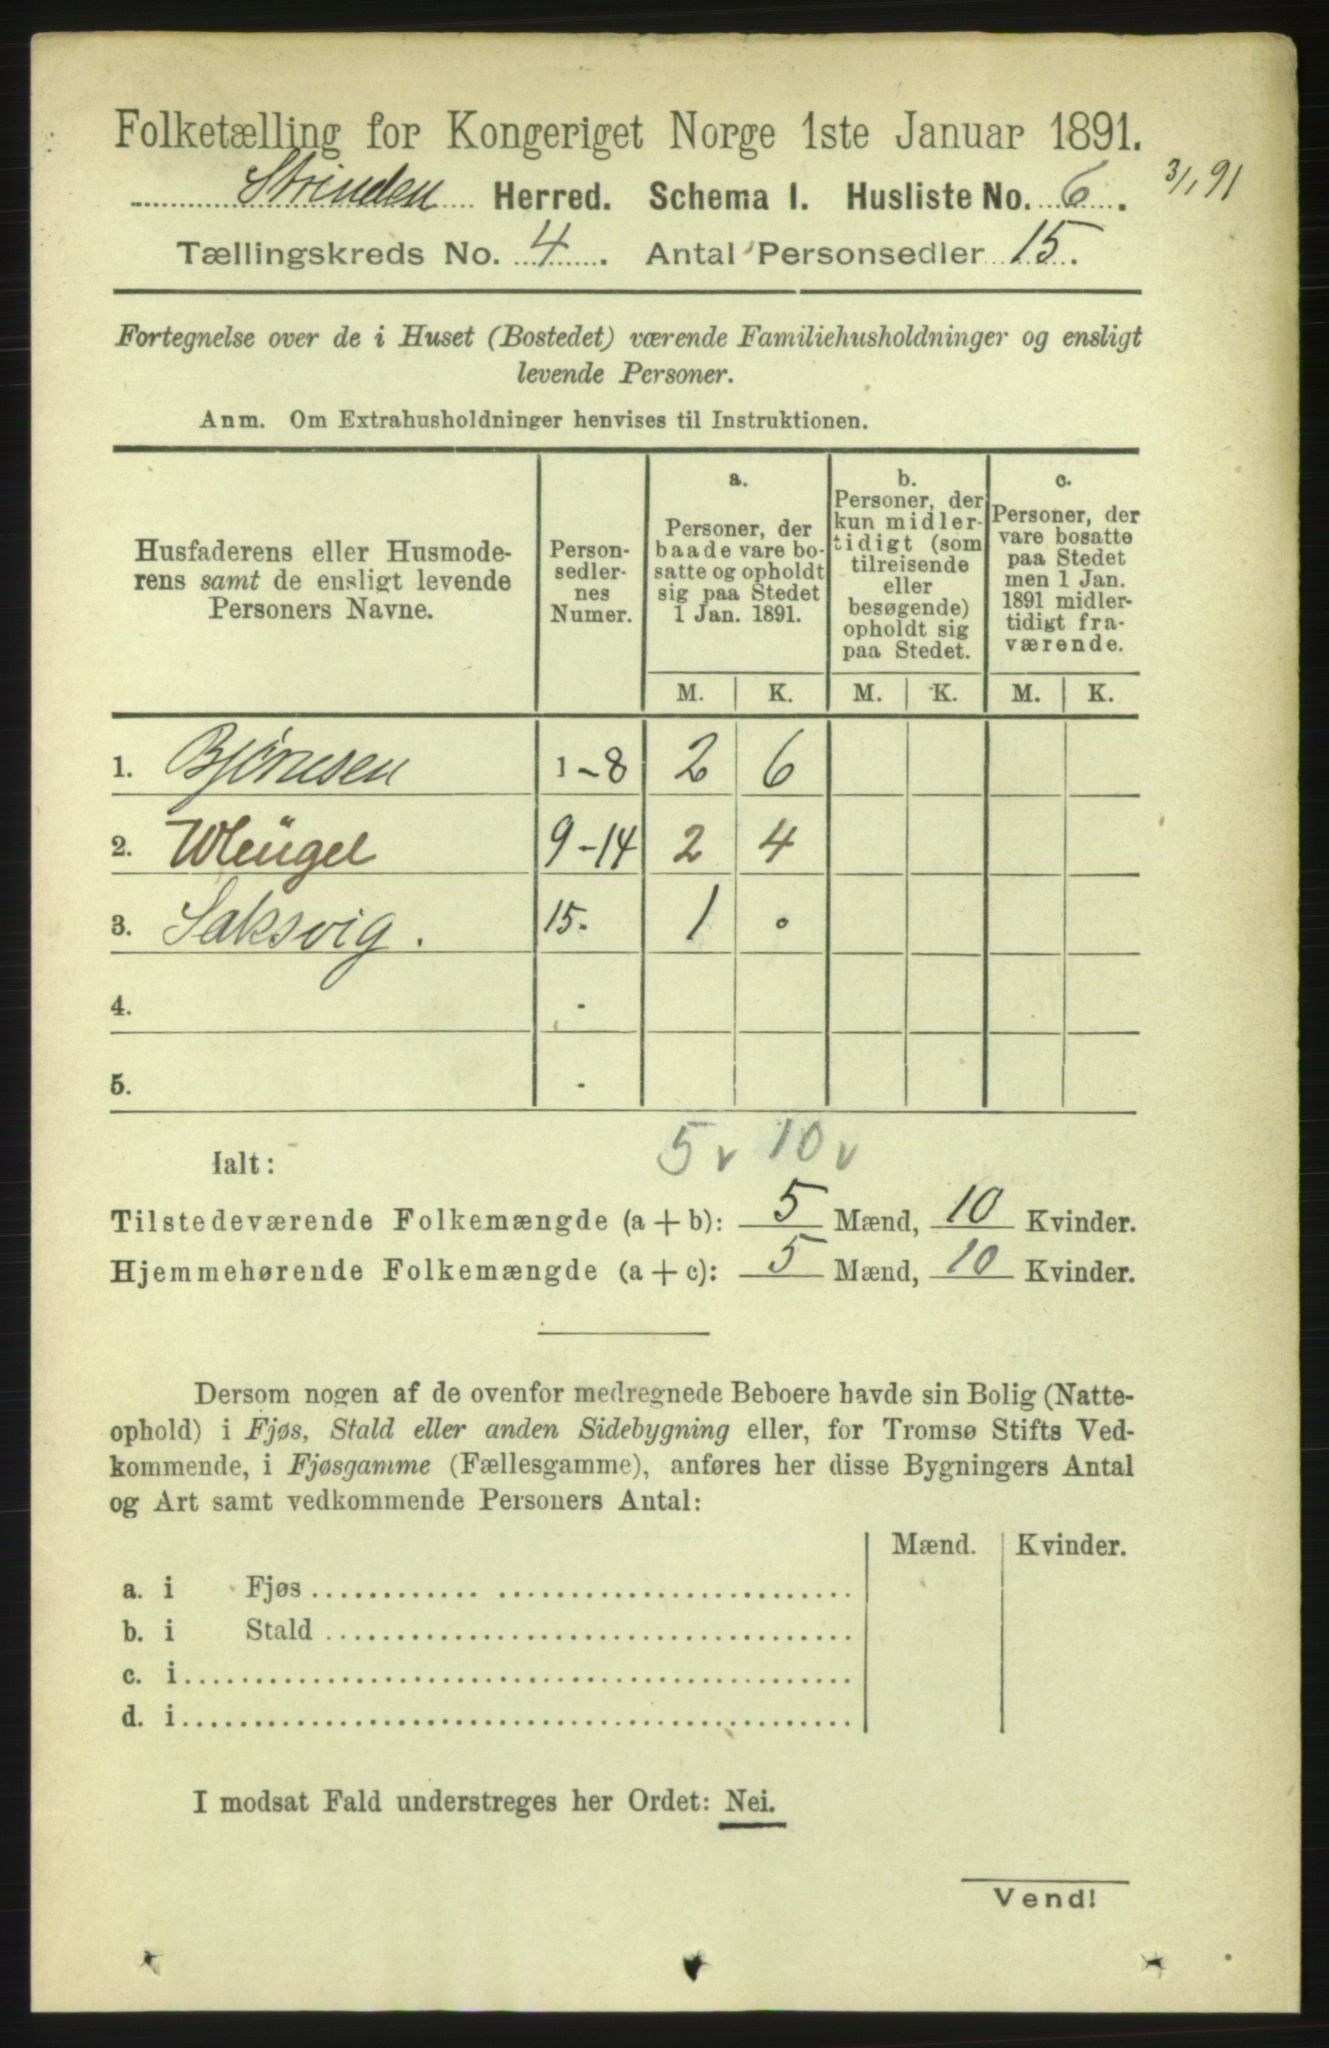 Folketælling for Kongeriget Norge 1ste Januar 1891.
3/1 91
Strinden Herred. Schema I. Husliste No. 6.
Tællingskreds No. 4. Antal Personsedler 15.
Fortegnelse over de i Huset (Bostedet) værende Familiehusholdninger og ensligt
levende Personer.
Anm. Om Extrahusholdninger henvises til Instruktionen.
Husfaderens eller Husmode-
rens samt de ensligt levende
Personers Navne.
Person-
sedler-
nes
Numer.
a.
Personer, der
baade vare bo-
satte og opholdt
sig paa Stedet
1 Jan. 1891.
b.
Personer, der
kun midler-
tidigt (som
tilreisende
eller
besøgende)
opholdt sig
paa Stedet.
c.
Personer, der
vare bosatte
paa Stedet
men 1 Jan.
1891 midler-
tidigt fra-
værende.
M. K. M. K. M. K.
1. Bjørnsen 1-8 2 6
2. 9-14 2 4
3. Saksvig. 15- 1 0
4. -
5. -
5 v 10 v
Ialt:
Tilstedeværende Folkemængde (a + b): 5 Mænd, 10 Kvinder.
Hjemmehørende Folkemængde (a + c): 5 Mænd, 10 Kvinder.
Dersom nogen af de ovenfor medregnede Beboere havde sin Bolig (Natte-
ophold) i Fjøs, Stald eller anden Sidebygning eller, for Tromsø Stifts Ved-
kommende, i Fjøsgamme (Fællesgamme), anføres her disse Bygningers Antal
og Art samt vedkommende Personers Antal:
Mænd. Kvinder.
a. i Fjøs
b. i Stald
c. i
d. i
I modsat Fald understreges her Ordet: Nei.
Vend!